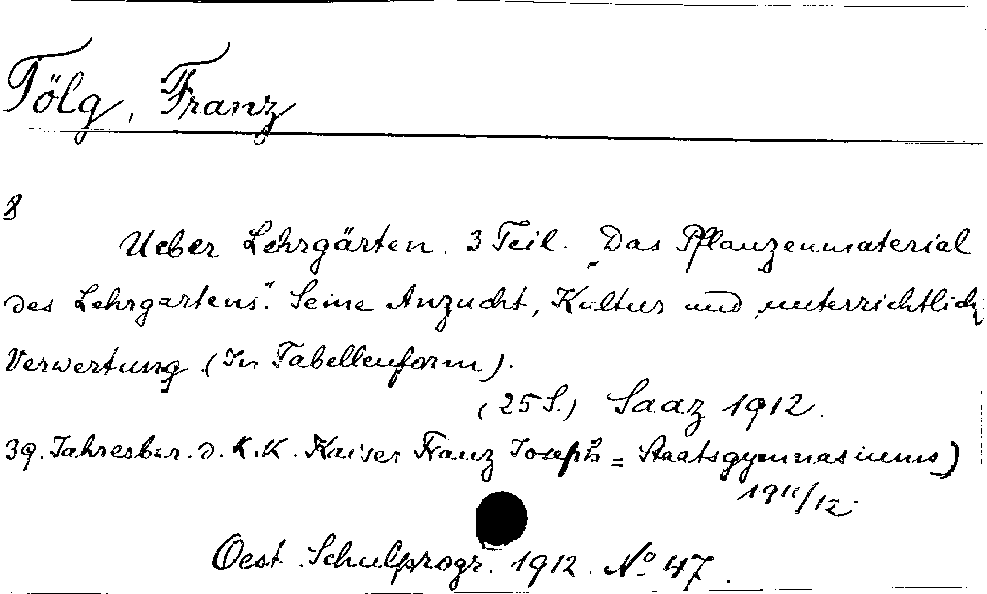 Tölg, Franz
8
Ueber Lehrgärten. 3 Teil. „Das Pflanzenmaterial
des Lehrgartens". Seine Anzucht, Kultur und unterrichtlich
Verwertung (In Tabellenform).
(25 S.) Saaz 1912.
39. Jahresber. d. K.K. Kaiser Franz Joseph = Staatsgymnasiums)
1911/12.
Oest. Schulprogr. 1912. No 47.